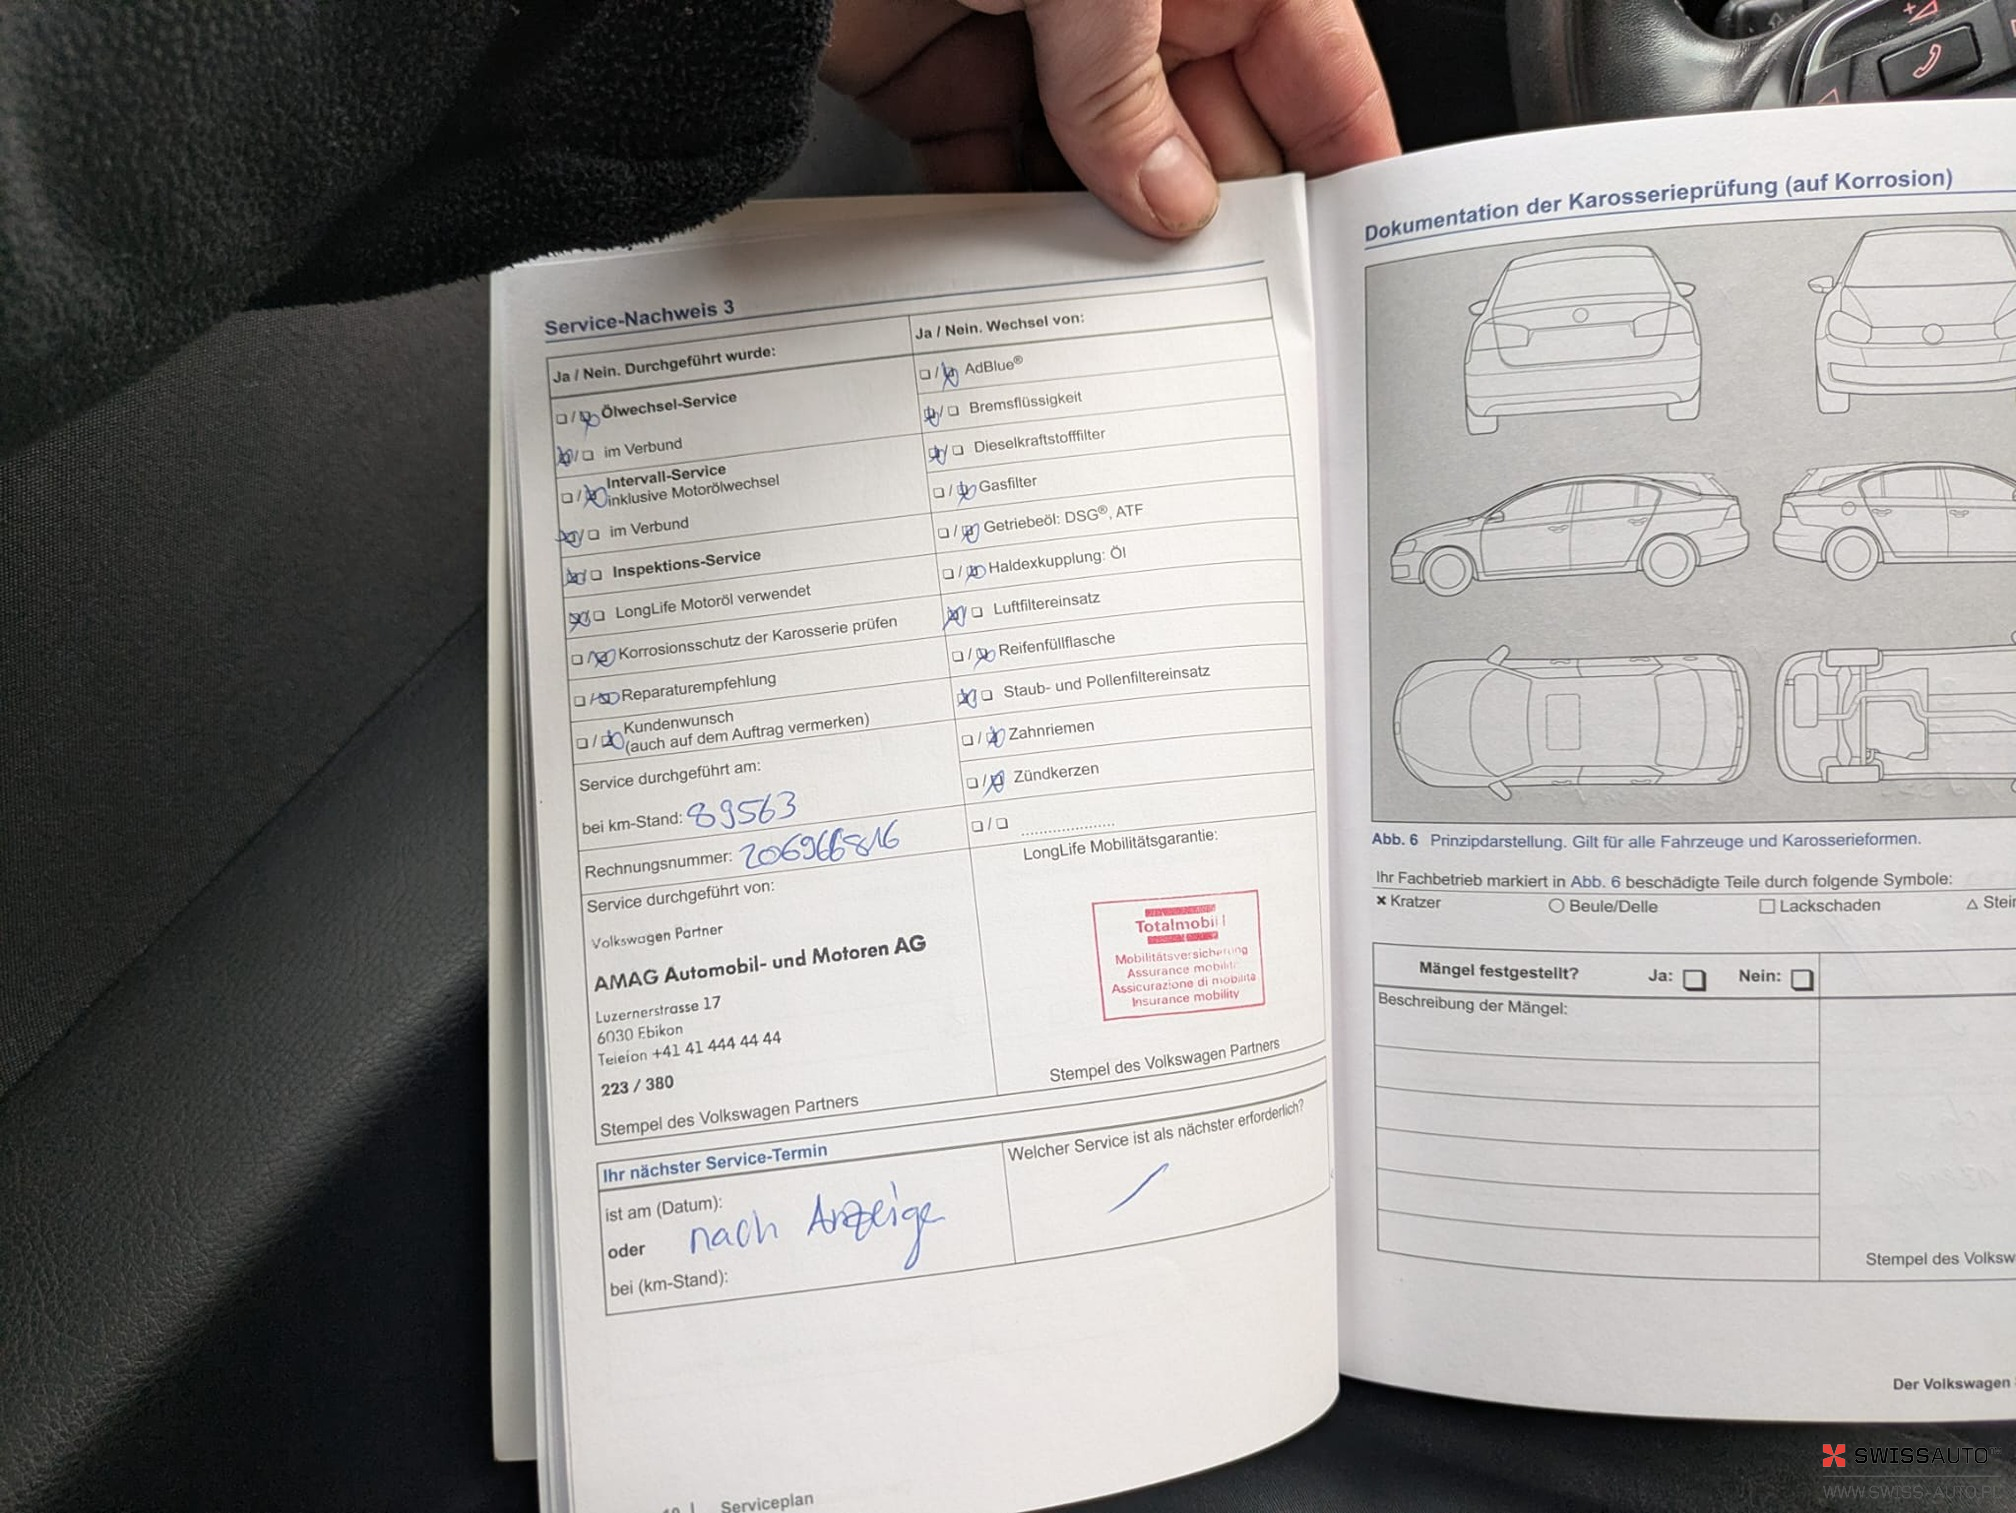 Service-Nachweis 3
Ja / Nein. Durchgeführt wurde:
Ölwechsel-Service
im Verbund
Intervall-Service
inklusive Motorölwechsel
im Verbund
Inspektions-Service
LongLife Motoröl verwendet
Korrosionsschutz der Karosserie prüfen
Reparaturempfehlung
Kundenwunsch
(auch auf dem Auftrag vermerken)
Service durchgeführt am:
bei km-Stand: 89563
Rechnungsnummer: 206966816
Service durchgeführt von:
Volkswagen Partner
AMAG Automobil- und Motoren AG
Luzernerstrasse 17
6030 Ebikon
Telefon +41 41 444 44 44
223 / 380
Stempel des Volkswagen Partners
Ja / Nein. Wechsel von:
AdBlue®
Bremsflüssigkeit
Dieselkraftstofffilter
Gasfilter
Getriebeöl: DSG®, ATF
Haldexkupplung: Öl
Luftfiltereinsatz
Reifenfüllflasche
Staub- und Pollenfiltereinsatz
Zahnriemen
Zündkerzen
LongLife Mobilitätsgarantie:
Totalmobil!
Mobilitätsversicherung
Assurance mobilité
Assicurazione di mobilità
Insurance mobility
Stempel des Volkswagen Partners
Ihr nächster Service-Termin
ist am (Datum):
oder nach Anzeige
bei (km-Stand):
Welcher Service ist als nächster erforderlich?
Serviceplan
Dokumentation der Karosserieprüfung (auf Korrosion)
Abb. 6 Prinzipdarstellung. Gilt für alle Fahrzeuge und Karosserieformen.
Ihr Fachbetrieb markiert in Abb. 6 beschädigte Teile durch folgende Symbole:
× Kratzer ○ Beule/Delle □ Lackschaden △ Stein
Mängel festgestellt? Ja: Nein:
Beschreibung der Mängel:
Stempel des Volksw
Der Volkswagen
SWISSAUTO
WWW.SWISS-AUTO.PL